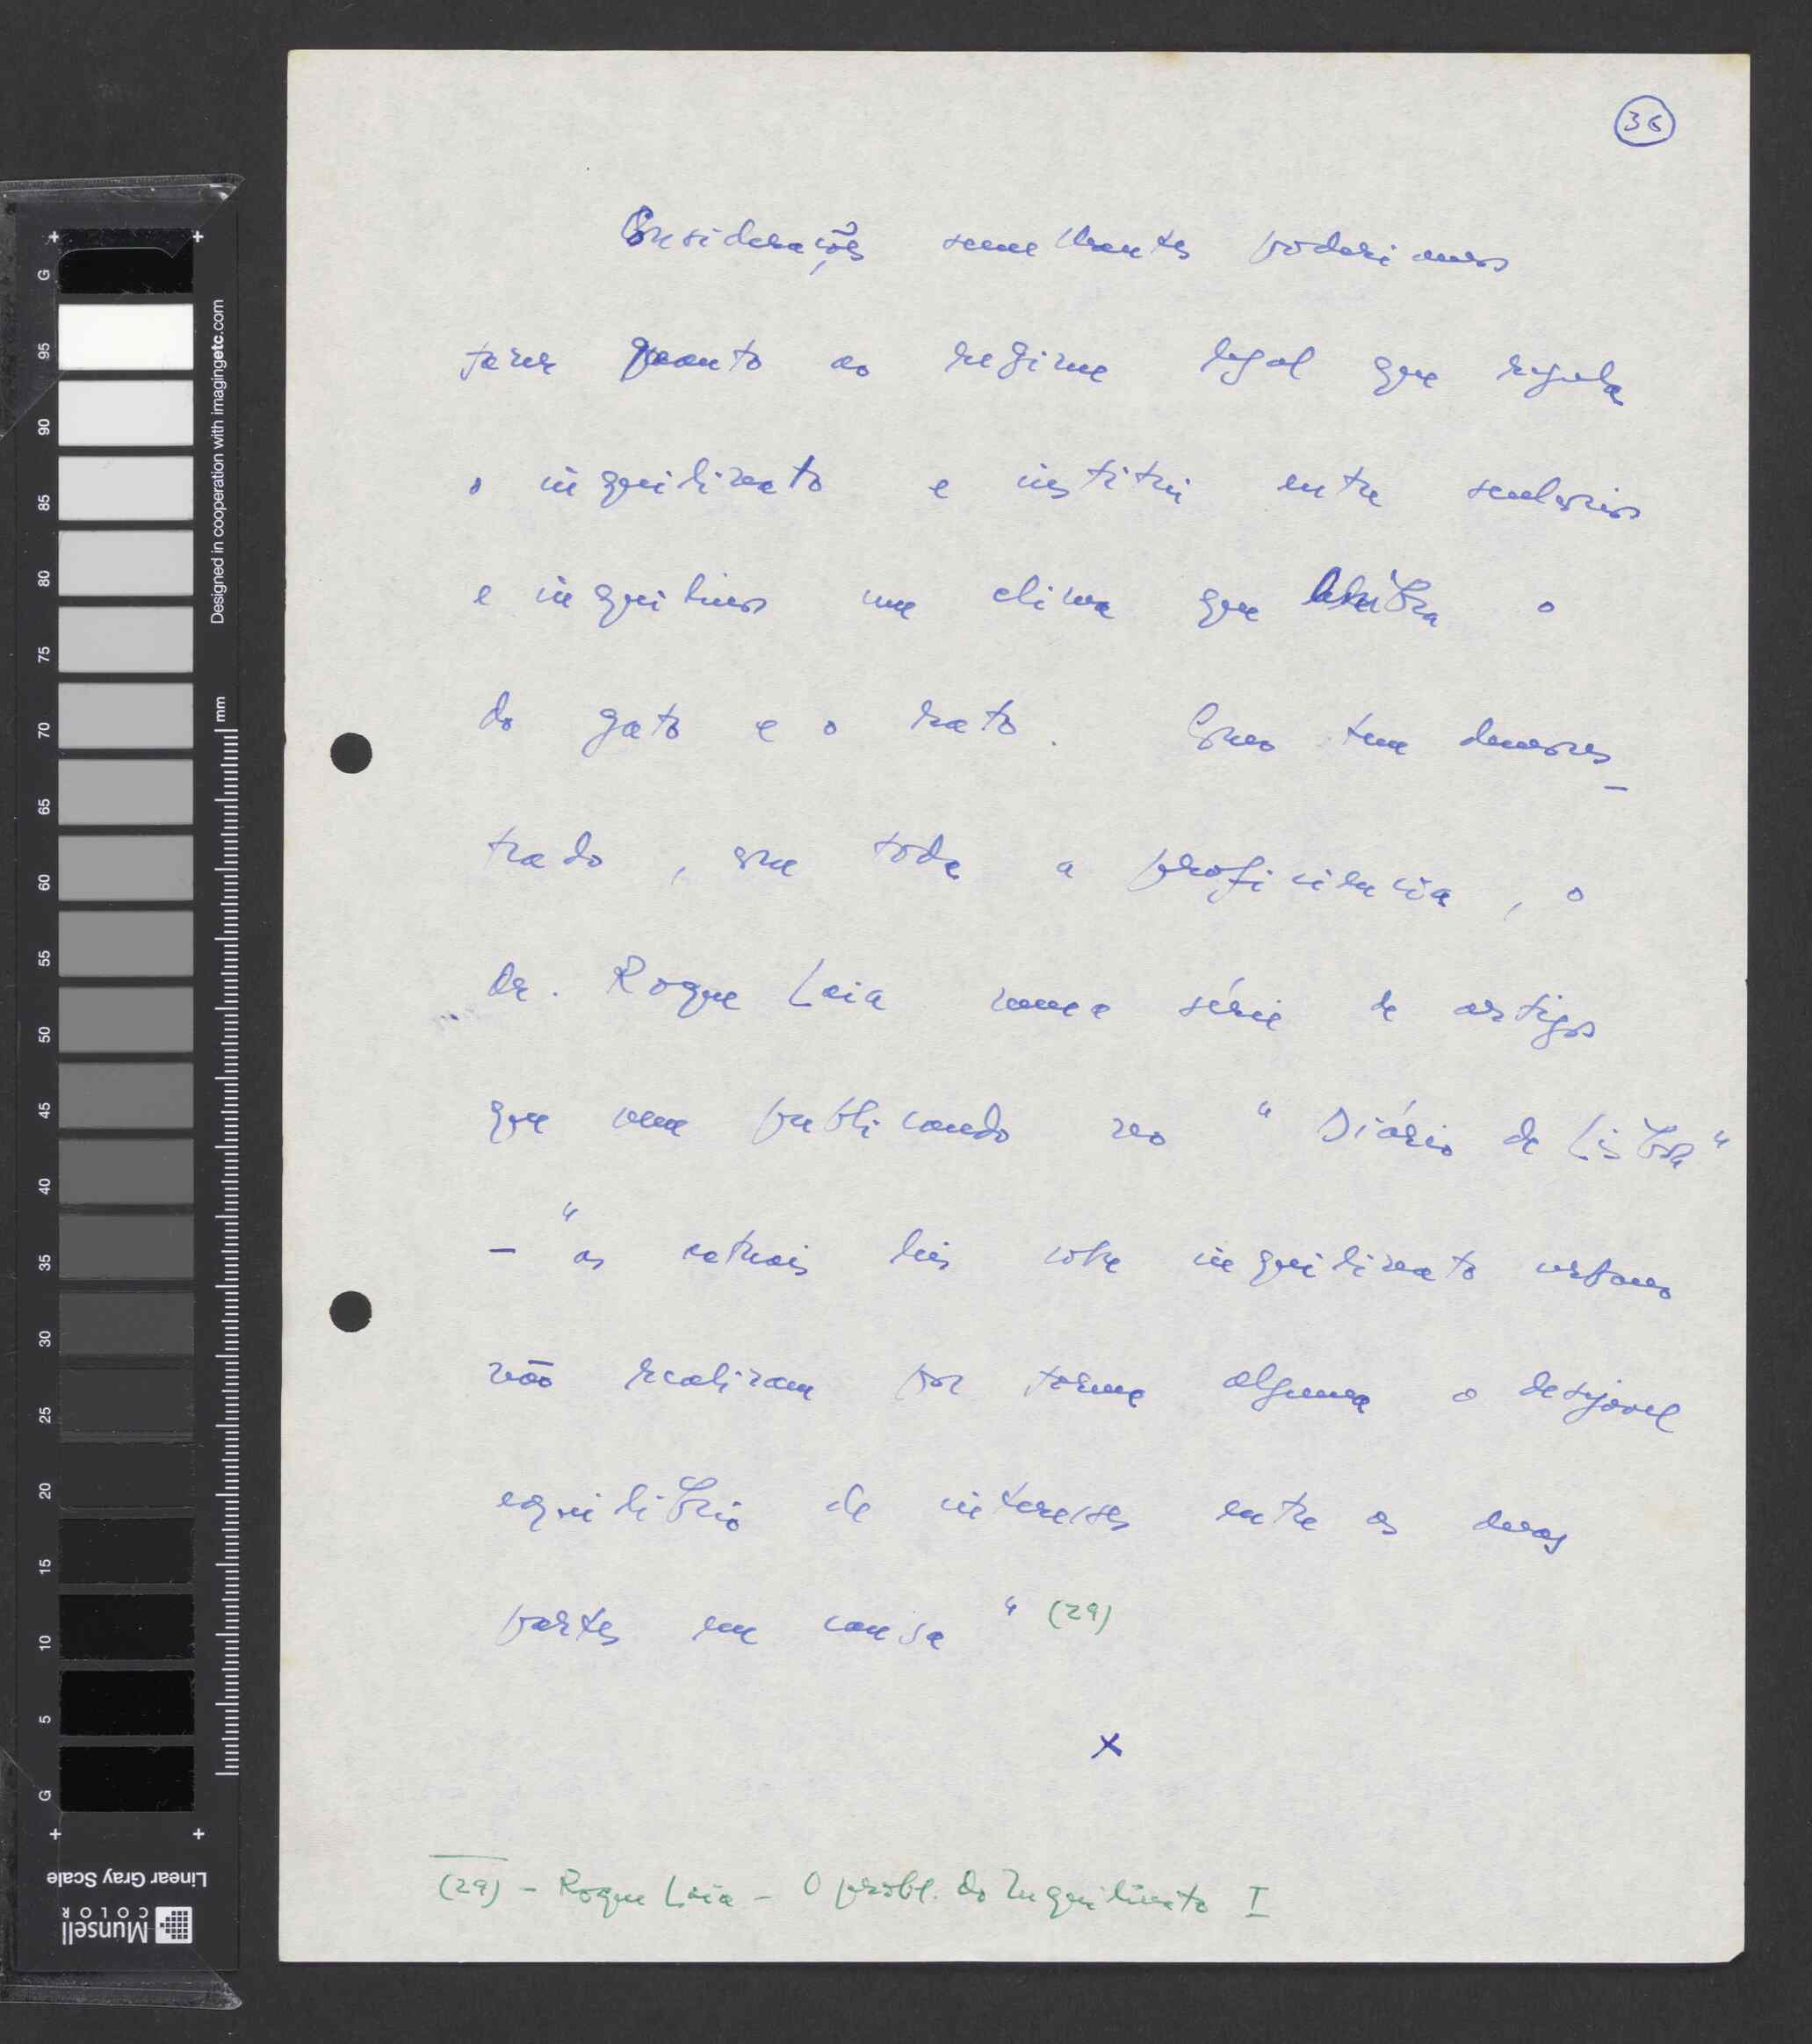 36
Considerações semelhantes poderiamos
fazer quanto ao regime legal que regula
o inquilinato e institui entre senhorios
e inquilinos um clima que lembra o
do gato e o rato. Como tem demons-
trado, com toda a proficiencia, o
dr. Roque Laia numa série de artigos
que vem publicando no "Diário de Lisboa"
- "as actuais leis sobre inquilinato urbano
não realizam por forma alguma o desejavel
equilibrio de interesses entre as duas
partes em causa" (29)
x
(29) - Roque Laia - O probl. do Inquilinato I
Designed in cooperation with imagingetc.com
mm
G
95
90
85
80
75
70
65
60
55
50
45
40
35
30
25
20
15
10
5
G
Linear Gray Scale
Munsell
COLOR